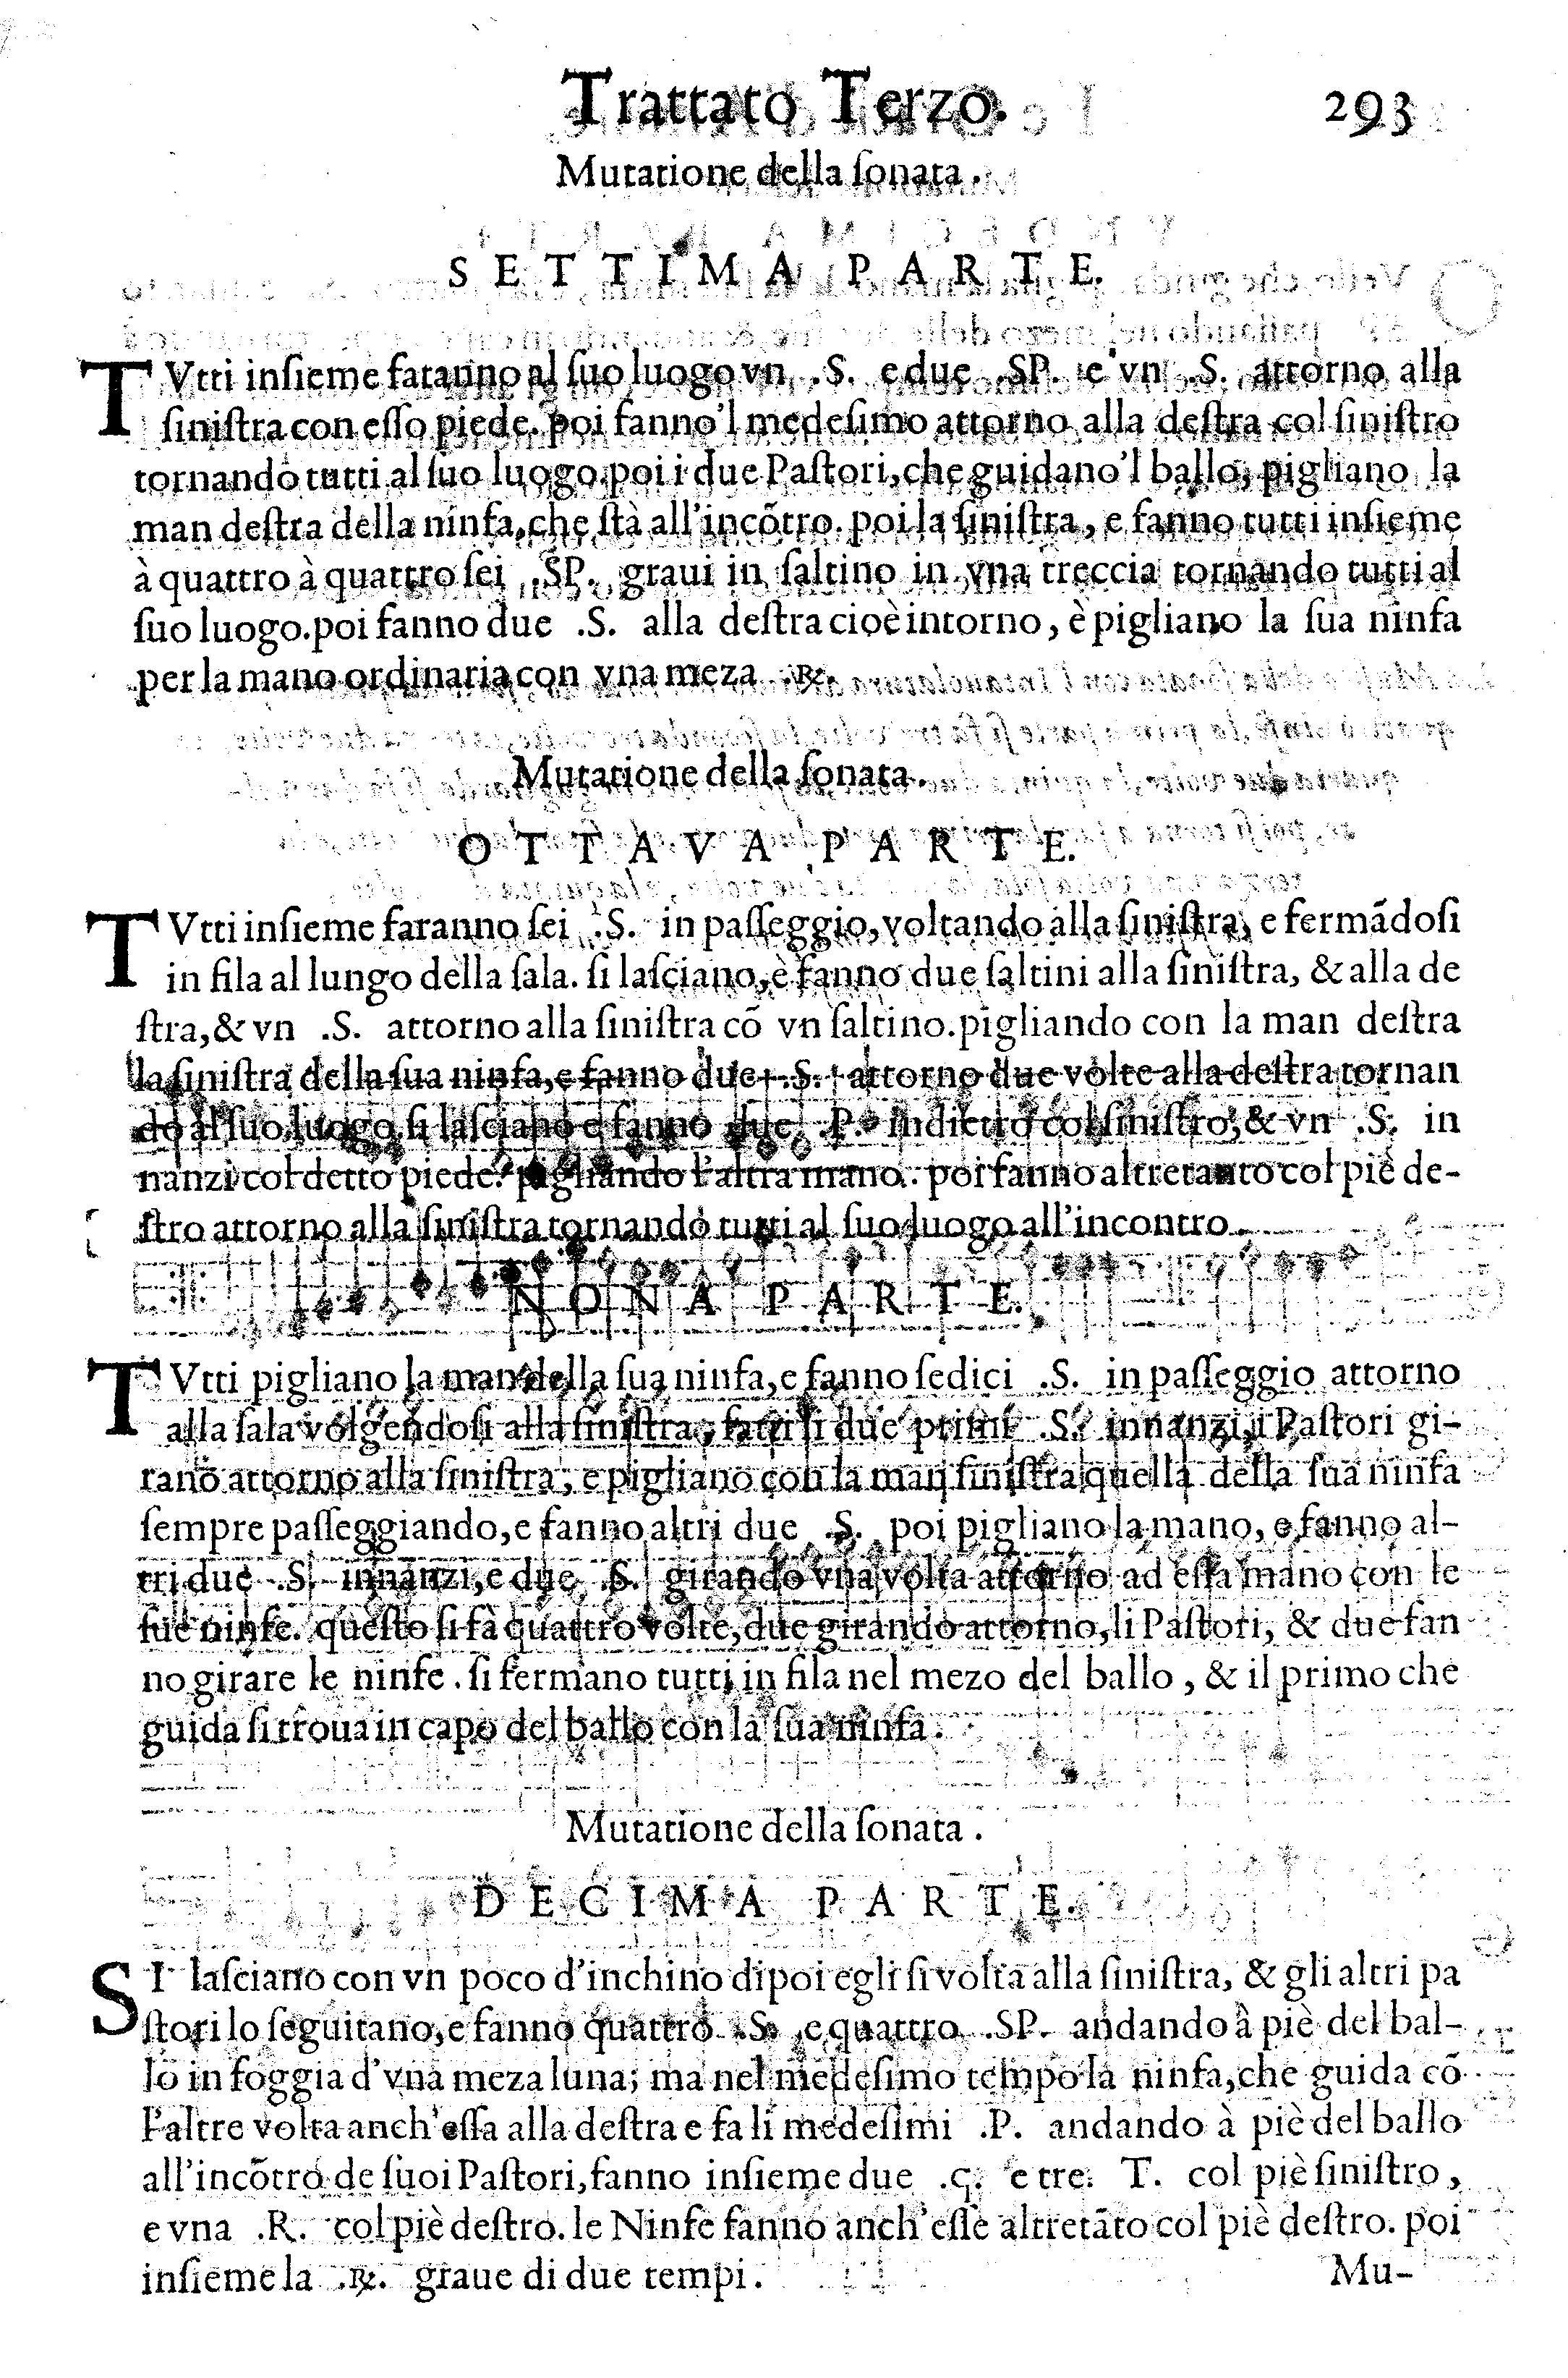 Trattato Terzo. 293
Mutatione della ſonata.
SETTIMA PARTE.
TVtti inſieme faranno al ſuo luogo vn .S. e due .SP. e vn .S. attorno alla
ſiniſtra con eſſo piede. poi fanno'l medeſimo attorno alla deſtra col ſiniſtro
tornando tutti al ſuo luogo. poi i due Paſtori, che guidano'l ballo, pigliano la
man deſtra della ninfa, che ſtà all'incõtro. poi la ſiniſtra, e fanno tutti inſieme
à quattro à quattro ſei .SP. graui in ſaltino in vna treccia tornando tutti al
ſuo luogo. poi fanno due .S. alla deſtra cioè intorno, è pigliano la ſua ninfa
per la mano ordinaria con vna meza .℞.
Mutatione della ſonata.
OTTAVA PARTE.
TVtti inſieme faranno ſei .S. in paſſeggio, voltando alla ſiniſtra, e fermãdoſi
in fila al lungo della ſala. ſi laſciano, è fanno due ſaltini alla ſiniſtra, & alla de
ſtra, & vn .S. attorno alla ſiniſtra cõ vn ſaltino. pigliando con la man deſtra
la ſiniſtra della ſua ninfa, e fanno due .S. attorno due volte alla deſtra tornan
do al ſuo luogo. ſi laſciano e fanno due .P. indietro col ſiniſtro, & vn .S. in
nanzi col detto piede. pigliando l'altra mano. poi fanno altretanto col piè de-
ſtro attorno alla ſiniſtra tornando tutti al ſuo luogo all'incontro.
NONA PARTE.
TVtti pigliano la man della ſua ninfa, e fanno ſedici .S. in paſſeggio attorno
alla ſala volgendoſi alla ſiniſtra, fatti li due primi .S. innanzi, i Paſtori gi-
rano attorno alla ſiniſtra, e pigliano con la man ſiniſtra quella della ſua ninfa
ſempre paſſeggiando, e fanno altri due .S. poi pigliano la mano, e fanno al-
tri due .S. innanzi, e due .S. girando vna volta attorno ad eſſa mano con le
ſue ninfe. queſto ſi fà quattro volte, due girando attorno, li Paſtori, & due fan
no girare le ninfe. ſi fermano tutti in fila nel mezo del ballo, & il primo che
guida ſi troua in capo del ballo con la ſua ninfa.
Mutatione della ſonata.
DECIMA PARTE.
SI laſciano con vn poco d'inchino dipoi egli ſi volta alla ſiniſtra, & gli altri pa
ſtori lo ſeguitano, e fanno quattro .S. e quattro .SP. andando à piè del bal-
lo in foggia d'vna meza luna; ma nel medeſimo tempo la ninfa, che guida cõ
l'altre volta anch'eſſa alla deſtra e fa li medeſimi .P. andando à piè del ballo
all'incõtro de ſuoi Paſtori, fanno inſieme due .ꞯ. e tre. T. col piè ſiniſtro,
e vna .R. col piè deſtro. le Ninfe fanno anch'eſſe altretãto col piè deſtro. poi
inſieme la .℞. graue di due tempi.
Mu-